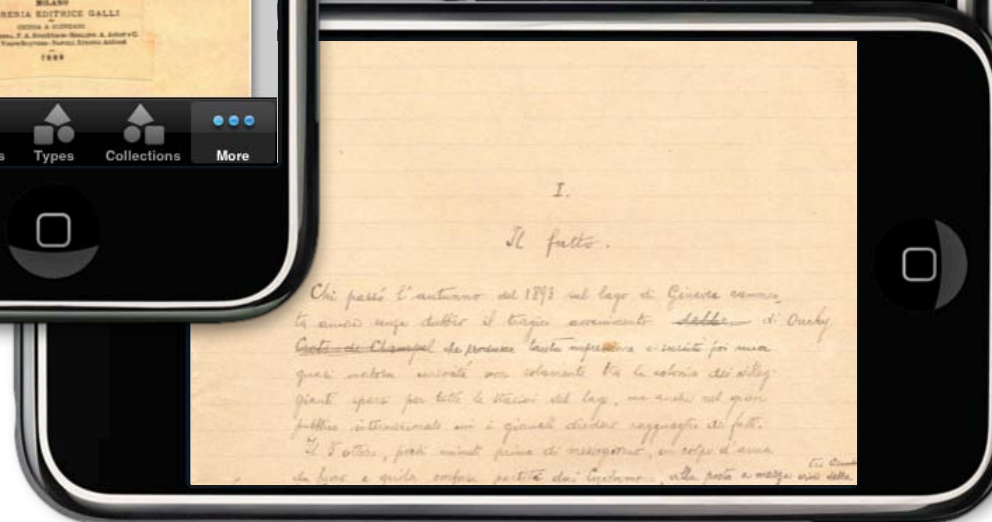 MILANO
LIBRERIA EDITRICE GALLI
1889
Types
Collections
More
I.
Il fatto.
Chi passò l'autunno del 1893 sul lago di Ginevra rammen-
ta ancora senza dubbio il tragico avvenimento della di Ouchy
Crots de Champel che produsse tanta impressione e suscitò poi una
quasi curiosità non solamente tra la colonia dei villeg-
gianti sparsi per tutte le stazioni del lago, ma anche nel gran
pubblico internazionale cui i giornali diedero ragguaglio dei fatti.
Il 5 ottobre, pochi minuti prima di mezzogiorno, un colpo d'arma
da fuoco e grida confuse partite dai villa posta a mezza via della